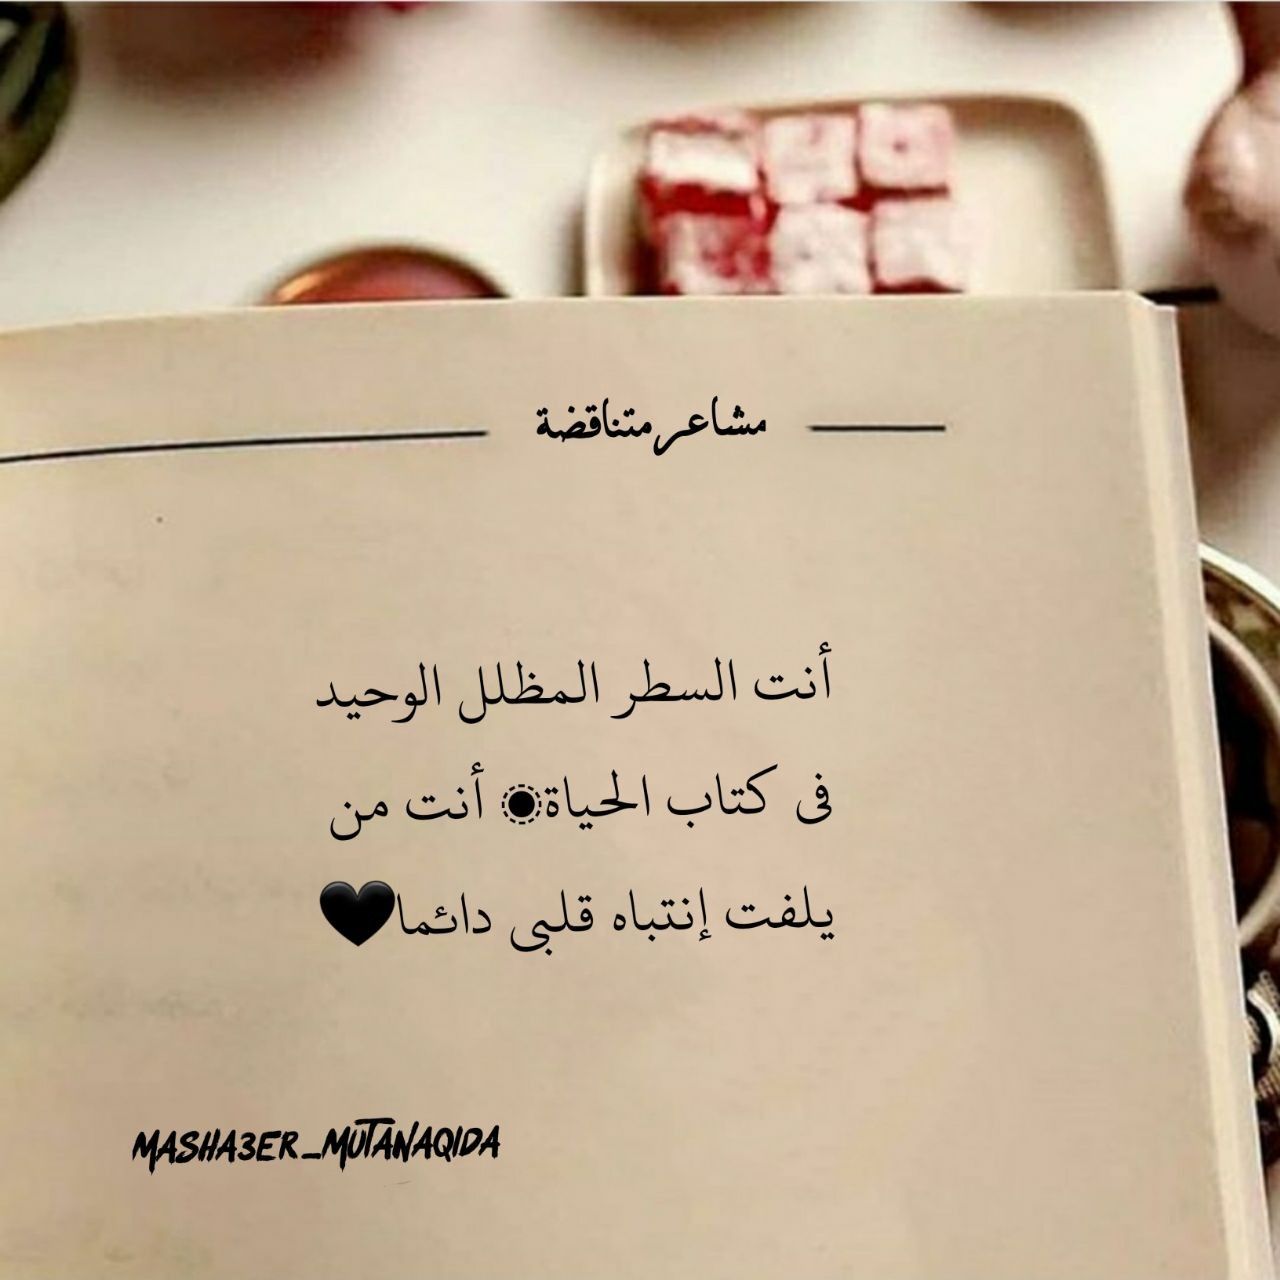 مشاعر متناقضة
أنت السطر المظلل الوحيد
فى كتاب الحياة◉ أنت من
يلفت إنتباه قلبى دائما🖤
MASHA3ER_MUTANAQIDA